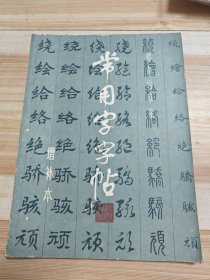 常用字字帖
增补本
绕绘给络绝骄骇顽
绕绘给络绝骄骇顽
绕绘给络绝骄骇顽
绕绘给络绝骄骇顽
繞繪給絡絕驕駭頑
绕绘给络绝骄骇顽